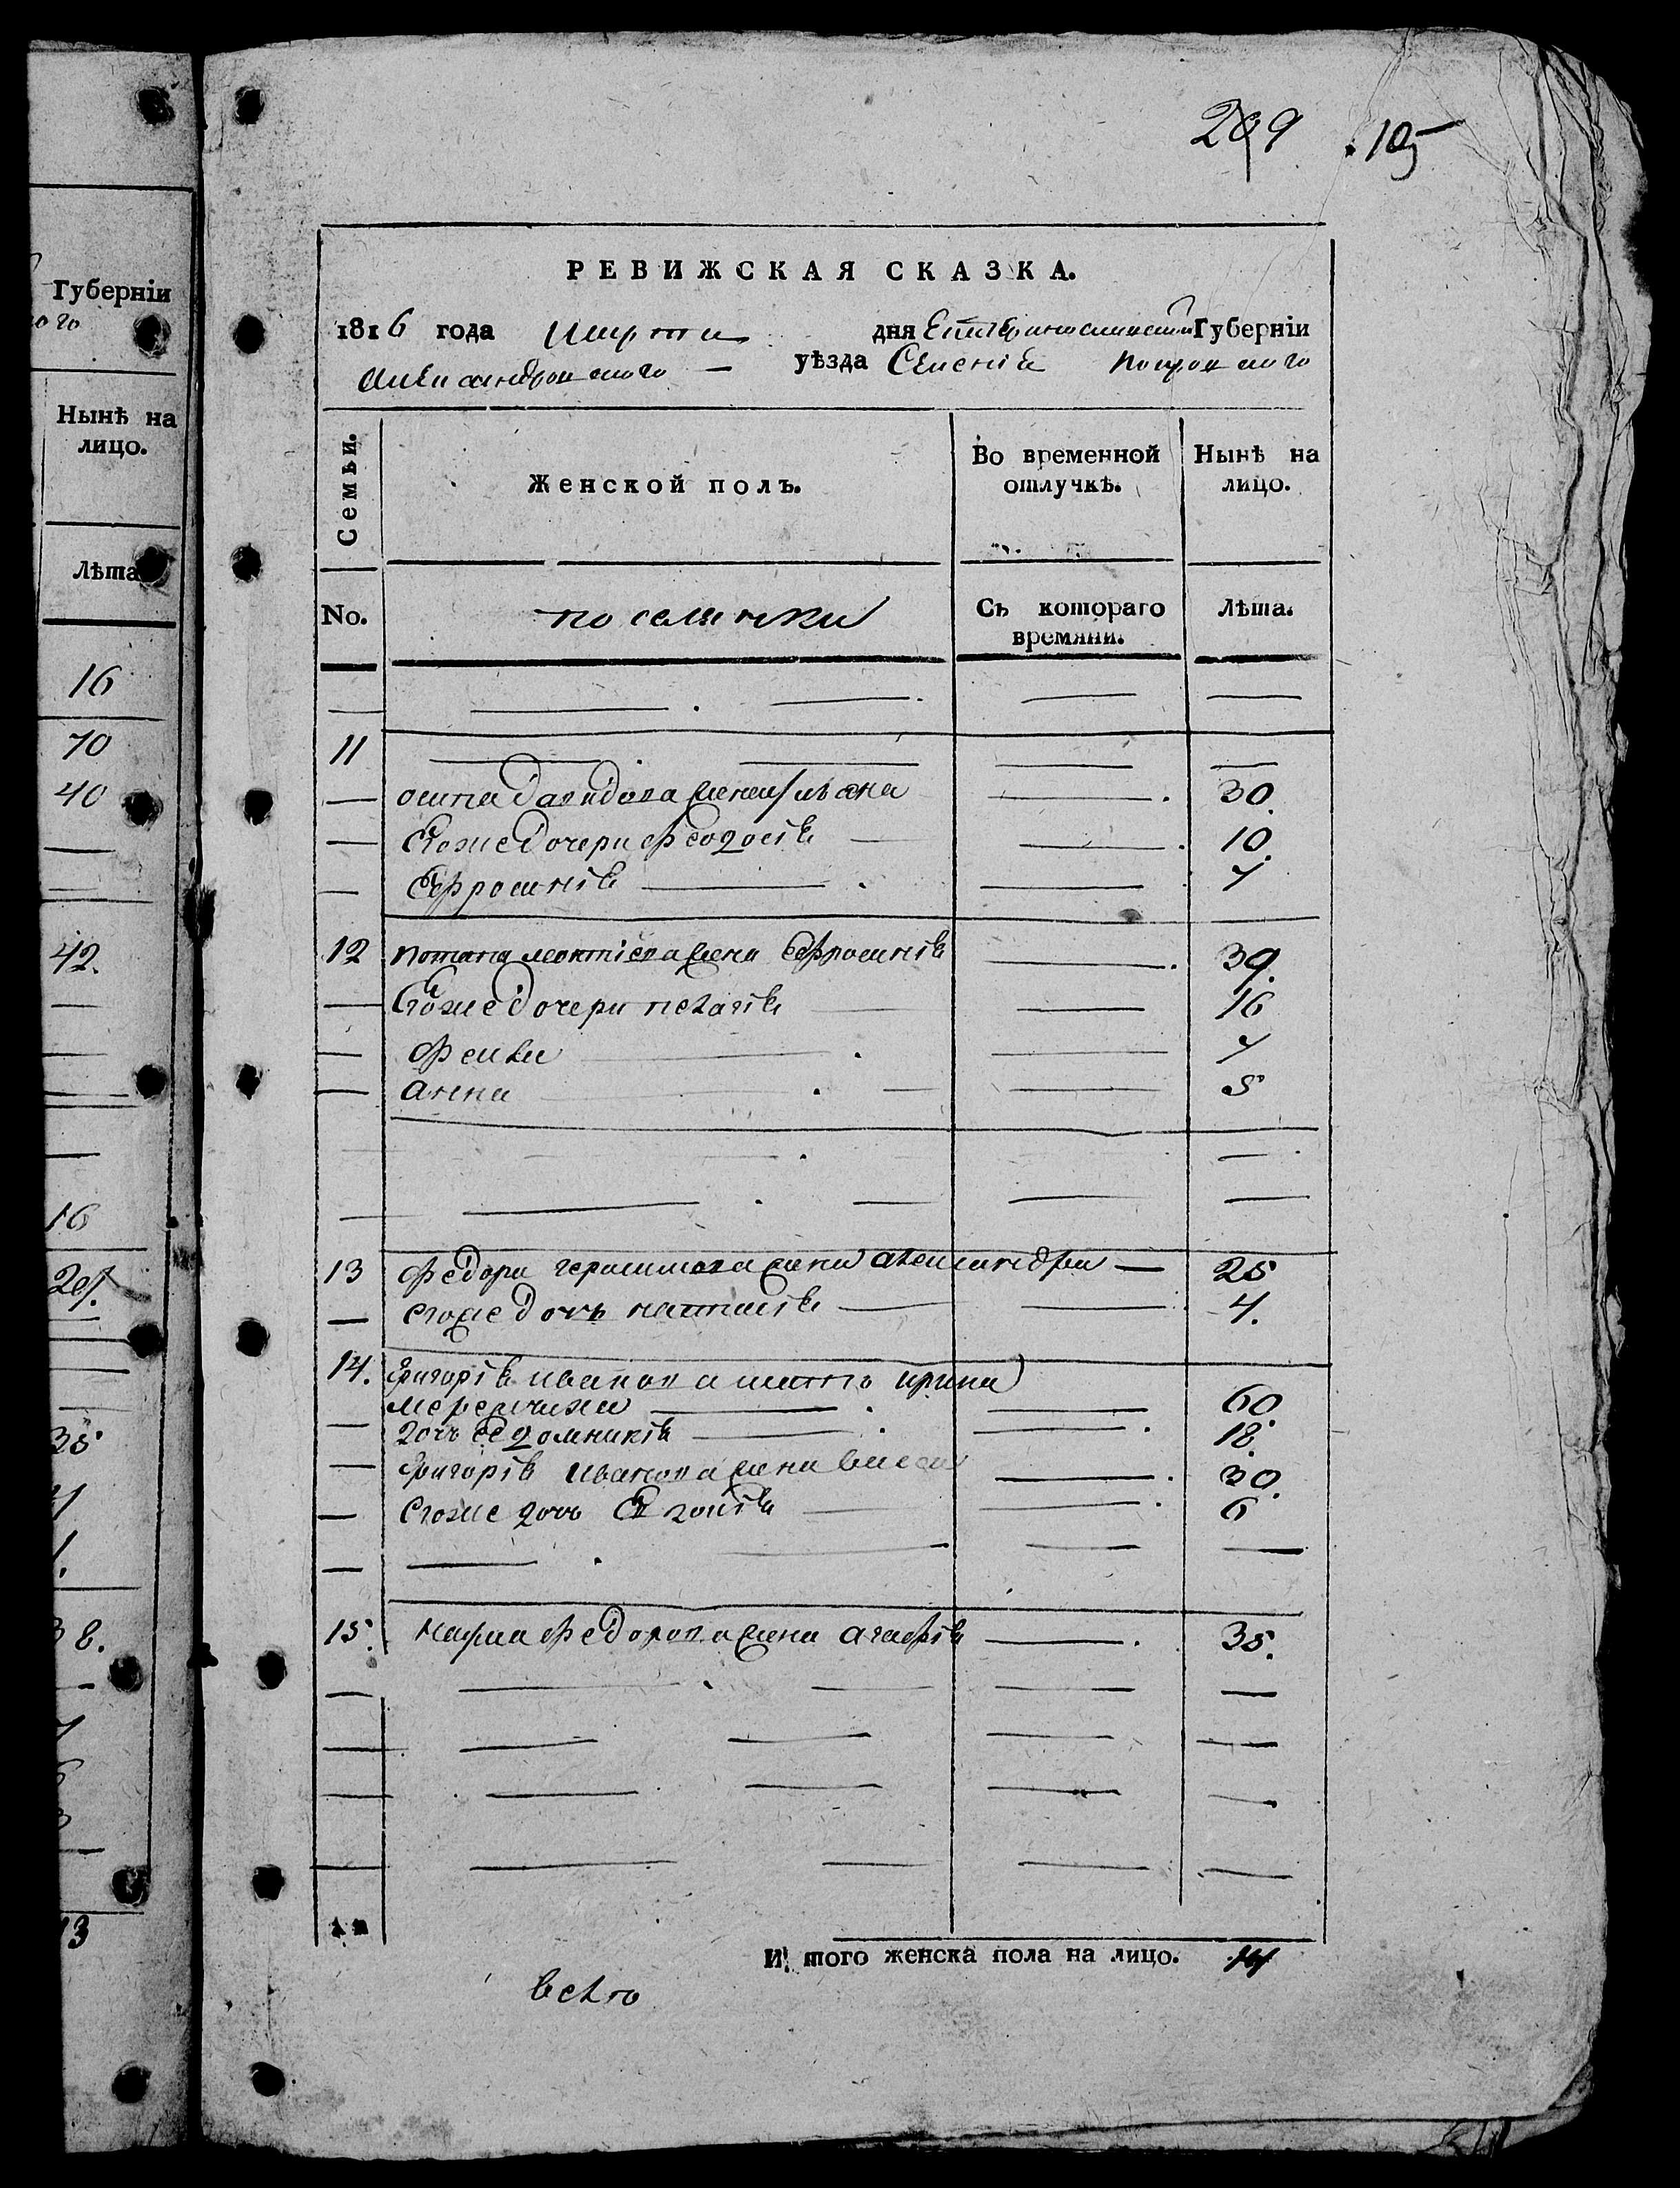 209 105
Губерніи
ого
Нынѣ на
лицо.
Лѣта
16
70
40
42.
16
35
13
РЕВИЖСКАЯ СКАЗКА.
1816 года Марта дня Екатеринославской Губерніи
Александровскаго уѣзда Селенія Покровскаго
Семьи.
Женской полъ.
Во временной отлучкѣ.
Нынѣ на лицо.
No.
поселянки
Съ котораго времяни.
Лѣта.
11
осипа давидова жена ульяна 30.
Егоже дочери феодосія 10.
Ефросинія 7
12 потапа жена Ефросинія 39.
Егоже дочери пелагія 16
Фекла 7
анна 5
13 федора герасимова жена александра 25
егоже дочь наталія 4.
14. Григорія иванова мать ирина
60
дочь ее домникія 18.
Григорія иванова жена 30.
егоже дочь Евдокія 6
15. федорова жена агафія 35.
И того женска пола на лицо. 14
всего